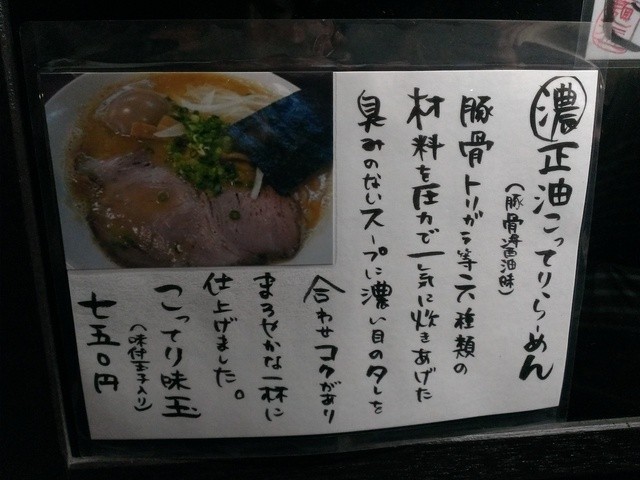 濃正油こってりらーめん
(豚骨醤油味)
豚骨トリガラ等六種類の
材料を圧力で一気に炊きあげた
臭みのないスープに濃い目のタレを
合わせコクがあり
まろやかな一杯に
仕上げました。
こってり味玉
(味付玉子入り)
七五〇円